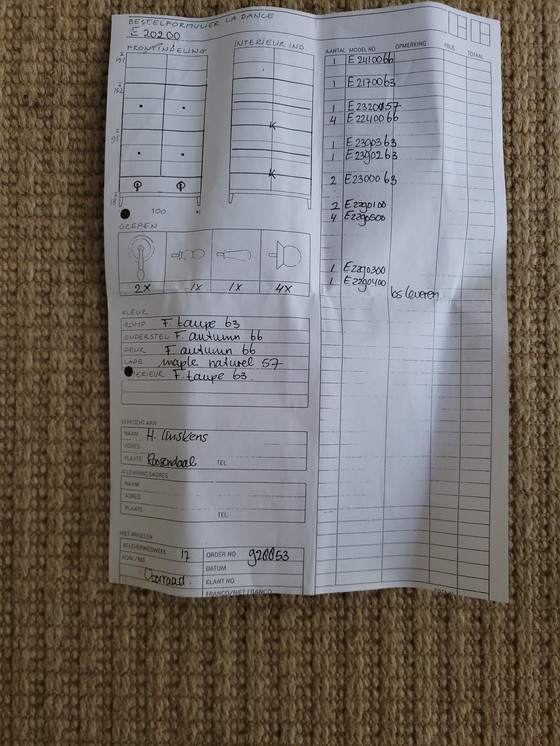 BESTELFORMULIER LA DANCE
E 20200
FRONTINDELING
INTERIEUR IND.
100
K
K
GREPEN
2X 1X 1X 4X
KLEUR
ROMP F. taupe 63
ONDERSTEL F. autumn 66
DEUR F autumn 66
LADE maple naturel 57
TERIEUR F. taupe 63
VERKOCHT AAN
NAAM H.
ADRES
PLAATS Roosendaal TEL.
AFLEVERINGSADRES
NAAM
ADRES
PLAATS TEL.
NIET INVULLEN
AFLEVERINGSWEEK 17 ORDER NO 928853
DATUM
Voorraad. KLANT NO
FRANCO/NIET FRANCO
AANTAL MODEL NO OPMERKING PRIJS TOTAAL
1 E2410066
1 E2170063
1 E2320057
4 E2240066
1 E2390363
1 E2390263
2 E2300063
2 E2290100
4 E2290500
1 E2290300
1 E2290400
los leveren